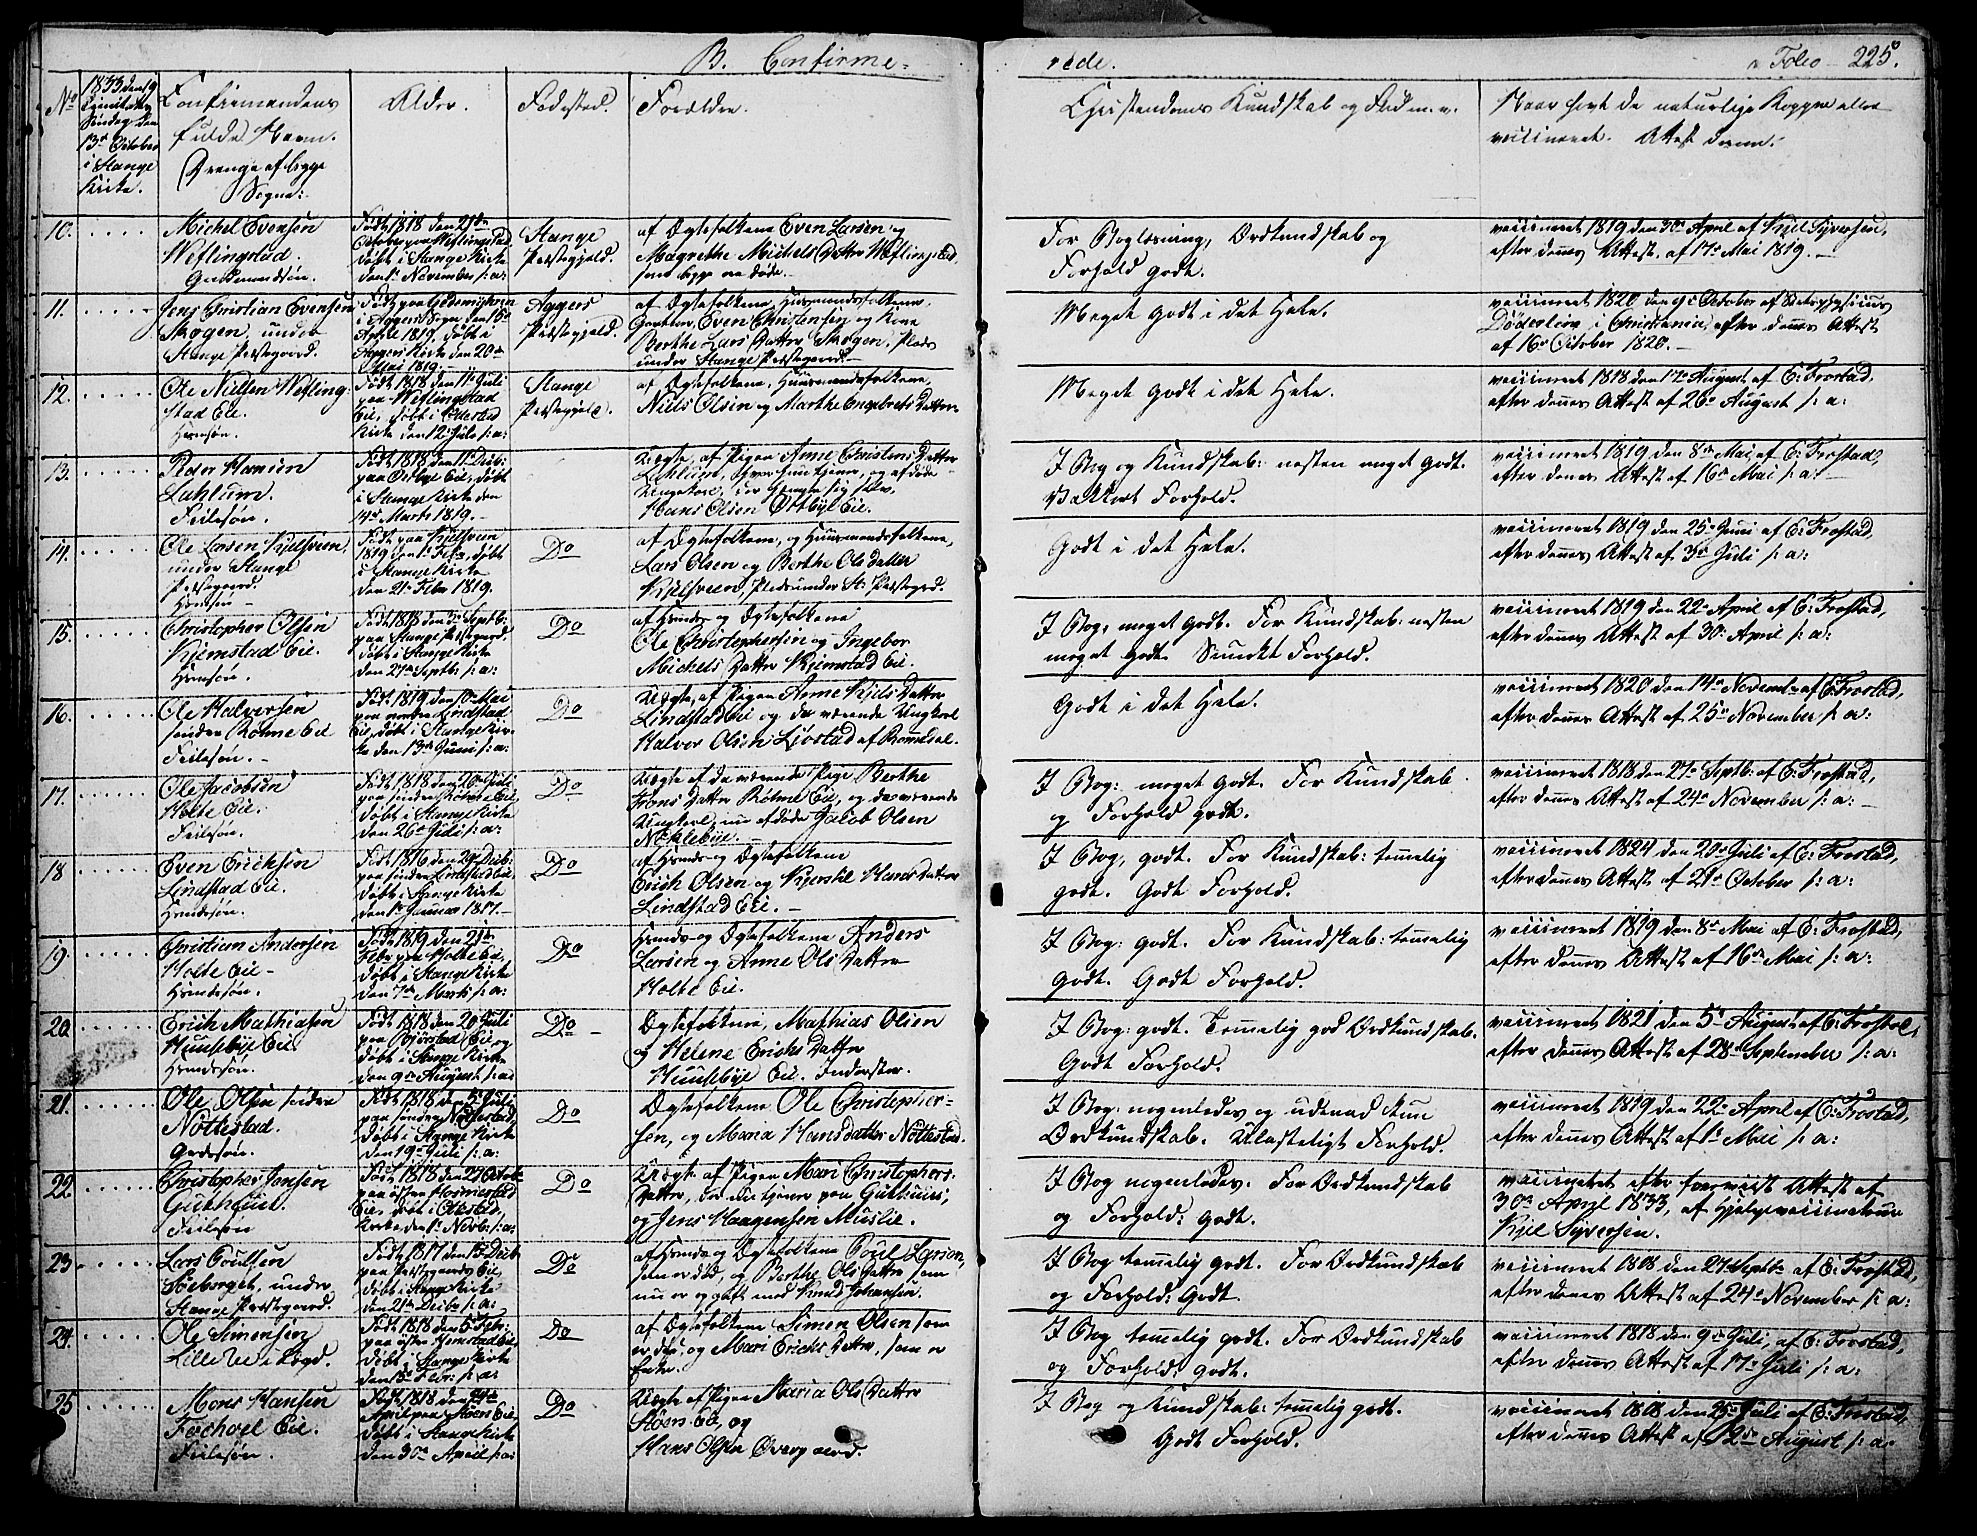 B. Confirme-
rede.
Folio 225.
No
1833 den 19
Søndag den
13de October
i Stange
Kirke.
Confirmandens
fulde Navn.
Drenge af begge
Sogne:
Alder.
Fødested.
Forældre.
Christendoms Kundskab og Flid m. v.
Naar havt de naturlige Kopper eller
vaccineret. Attest derom.
10.
Michel Evensen
Weflingstad.
Gudmandssøn.
Født 1818 den 21de
October paa Weflingstad,
døbt i Stange Kirke
den 1e November s: a:
Stange
Præstegjeld.
af Ægtefolkene Even Larsen og
Magrethe Michels Datter Weflingstad,
som begge ere døde.
For Boglæsning, Ordkundskab og
Forhold godt.
vaccineret 1819 den 30te April af Kjel Syversen,
efter dennes Attest af 17de Mai 1819.
11.
Jens Christian Evensen
Skogen, under
Stange Præstegaard.
i Aggers Sogn den 16de
April 1819, døbt i
Aggers Kirke den 20de
Mai 1819.
Aggers
Præstegjeld.
af Ægtefolkene, Huusmandsfolkene,
Even Christensen og Kone
Berthe Lars Datter Skogen, Plads
under Stange Præstegaard.
Meget godt i det Hele.
vaccineret 1820 den 9de October af
Døderlein i Christiania, efter dennes Attest
af 16de October 1820.
12.
Ole Nielsen Wefling-
stad Eie.
Huussøn.
Født 1818 den 11te Juli
paa Weflingstad
Eie, døbt i Ottestad
Kirke den 12te Juli s: a:
Stange
Præstegjeld.
af Ægtefolkene, Huusmandsfolkene,
Niels Olsen og Marthe Engebrets Datter
Meget godt i det Hele.
vaccineret 1818 den 17de August af E: Frostad,
efter dennes Attest af 26de August s: a:
13.
Peder Hansen
Lahlum.
Pleiesøn.
Født 1818 den 11te Decb:
paa Østbye Eie, døbt
i Stange Kirke den
14de Marts 1819.
Uægte, af Pigen Anne Christens Datter
Lahlum, hvor hun tjener, og afdøde
Hans Olsen Østbye Eie.
I Bog og Kundskab: nesten meget godt.
Vakkert Forhold.
vaccineret 1819 den 8de Mai af E: Frostad,
efter dennes Attest af 16de Mai s: a:
14.
Ole Larsen Kjelsveen,
under Stange
Præstegaard.
Huussøn
Født paa Kjelsveen
1819 den 1e Febr, døbt
i Stange Kirke
den 21de Febr 1819.
Do
af Ægtefolkene, og Huusmandsfolkene,
Lars Olsen og Berthe Ols Datter
Kjelsveen, Plads under St: Præstegrd.
Godt i det Hele.
vaccineret 1819 den 25de Juni af E: Frostad,
efter dennes Attest af 3de Juli s: a:
15.
Christopher Olsen
Kjemstad Eie.
Huussøn.
Født 1818 den 3de Septb:
paa Stange Præstegaard,
døbt i Stange Kirke
den 27de Septb: s: a:
Do
af Huus- og Ægtefolkene
Ole Christophersen og Ingebor
Michels Datter Kjemstad Eie.
I Bog: meget godt. For Kundskab: nesten
meget godt. Smukt Forhold.
vaccineret 1819 den 22de April af E: Frostad,
efter dennes Attest af 30te April s: a:
16.
Ole Halvorsen
søndre Rohne Eie
Pleiesøn.
Født 1819 den 10de Mai
paa nordre Lindstad
Eie, døbt i Stange Kir-
ke den 13de Juni s: a:
Do
Uægte, af Pigen Anne Kjels Datter
Lindstad Eie og da værende Ungkarl
Halvor Olsen Livstad af Romedal.
Godt i det Hele.
vaccineret 1820 den 14de November af E: Frostad,
efter dennes Attest af 25de November s: a:
17.
Ole Jacobsen
Holte Eie.
Pleiesøn.
Født 1818 den 20de Juli
paa søndre Rohne Eie,
døbt i Stange Kirke
den 26de Juli s: a:
Do
Uægte af da værende Pige Berthe
Frans Datter Rohne Eie, og da værende
Ungkarl, nu afdøde Jacob Olsen
Nøklebye.
I Bog: meget godt. For Kundskab
og Forhold godt.
vaccineret 1818 den 27de Septb: af E: Frostad,
efter dennes Attest af 24de November s: a:
18
Even Erichsen
Lindstad Eie.
Huussøn.
Født 1816 den 29de Decb:
paa søndre Lindstad Eie,
døbt i Stange Kirke
den 1e Januar 1817.
Do
af Huus- og Ægtefolkene
Erich Olsen og Kjersti Hans Datter
Lindstad Eie.
I Bog, godt. For Kundskab: temelig
godt. Godt Forhold.
vaccineret 1824 den 20de Juli af E: Frostad,
efter dennes Attest af 21de October s: a:
19
Christian Andersen
Holte Eie
Huussøn.
Født 1819 den 21de
Febr paa Holte Eie,
døbt i Stange Kirke
den 7de Marts s: a:
Do
Huus- og Ægtefolkene Anders
Larsen og Anne Ols Datter
Holte Eie.
I Bog: godt. For Kundskab: temelig
godt. Godt Forhold.
vaccineret 1819 den 8de Mai af E: Frostad,
efter dennes Attest af 16de Mai s: a:
20
Erich Mathiasen
Huusebye Eie.
Huussøn.
Født 1818 den 20de Juli
paa Bjørstad Eie og
døbt i Stange Kirke
den 9de August s: a:
Do
Ægtefolkene, Mathias Olsen
og Helene Erichs Datter
Huusebye Eie. Inderster.
I Bog: godt. Temelig god Ordkundskab.
Godt Forhold.
vaccineret 1821 den 5te August af E: Frostad,
efter dennes Attest af 28de September s: a:
21.
Ole Olsen søndre
Nøttestad.
Gaardsøn.
Født 1818 den 5te Juli
paa søndre Nøttestad,
døbt i Stange Kirke
den 19de Juli s: a:
Do
Ægtefolkene Ole Christopher-
sen, og Maria Hans datter Nøttestad.
I Bog: nogenledes og udenad kun
Ordkundskab. Ulasteligt Forhold.
vaccineret 1819 den 22de April af E: Frostad,
efter dennes Attest af 1e Mai s: a:
22
Christopher Jensen
Guthuus.
Pleiesøn
Født 1818 den 27 Octob:
paa østre Hosmestad
Eie, døbt i Ottestad
Kirke den 1e Novbr: s: a:
Do
Uægte af Pigen Mari Christophers-
Datter, der nu tjener paa Guthuus,
og Jens Haagensen Muslie.
I Bog nogenledes. For Ordkundskab
og Forhold: godt.
vaccineret efter foreviist Attest af
30te April 1833, af Hjelpevaccinateur
Kjel Syversen.
23
Lars Poulsen
Søeberget, under
Stange Præstegaard.
Født 1817 den 15de Decb:
paa Præstegaards Eie,
døbt i Stange Kirke
den 21de Decbr s: a:
Do
af Huus- og Ægtefolkene Poul Larsen,
som er død, og Berthe Ols Datter, som
nu er og gift med Knud Johansen.
I Bog temelig godt. For Ordkundskab
og Forhold: Godt.
vaccineret 1818 den 27de Septb: af E: Frostad,
efter dennes Attest af 24de November s: a:
24.
Ole Simensen
Lille Ree i Løgd.
Født 1818 den 5te Febr:
paa østre Kjemstad Eie,
døbt i Stange Kirke
den 15de Febr: s: a:
Do
af Ægtefolkene Simen Olsen som
er død, og Mari Erichs Datter, som er
Enke.
I Bog temelig godt. For Ordkundskab
og Forhold: godt.
vaccineret 1818 den 9de Juli, af E: Frostad,
efter dennes Attest af 17de Juli s: a:
25
Mons Hansen
Fockoel Eie.
Pleiesøn.
Født 1818 den 24de
April paa Hoens Eie,
døbt i Stange Kirke
den 30te April s: a:
Do
Uægte af Pigen Maria Ols Datter
Hoens Eie, og
Hans Olsen Overgaard.
I Bog og Kundskab: temelig godt.
Godt Forhold.
vaccineret 1818 den 25de Juli af E: Frostad,
efter dennes Attest af 2de August s: a: